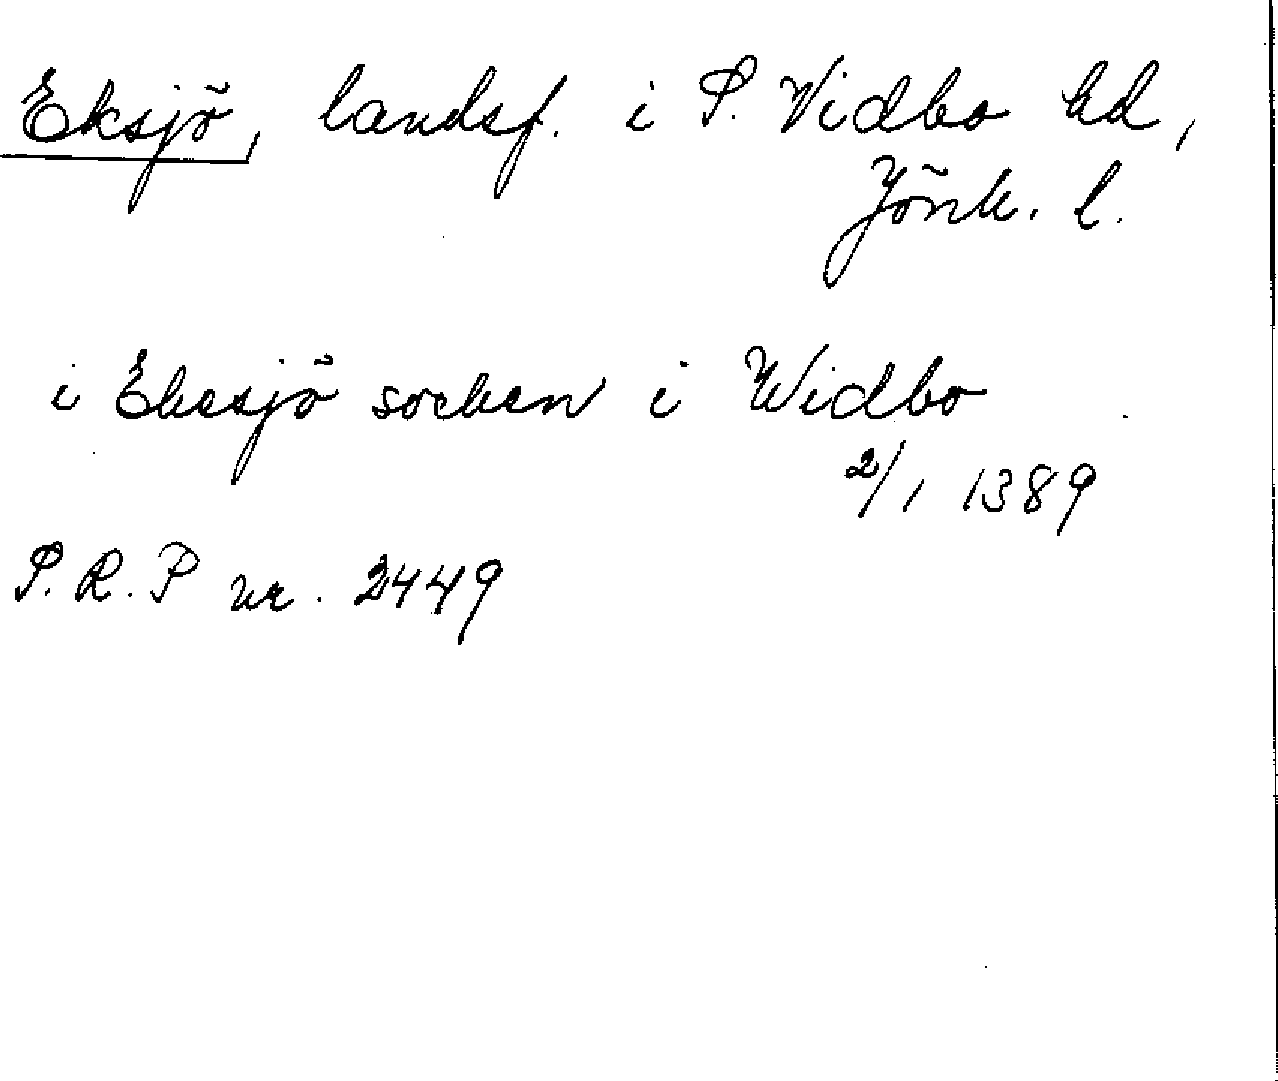 Eksjö, landsf. i S. Vidbo hd,
Jönk. l.
i Eksjö socken i Widbo
2/1 1389
S.R.P nr. 2449